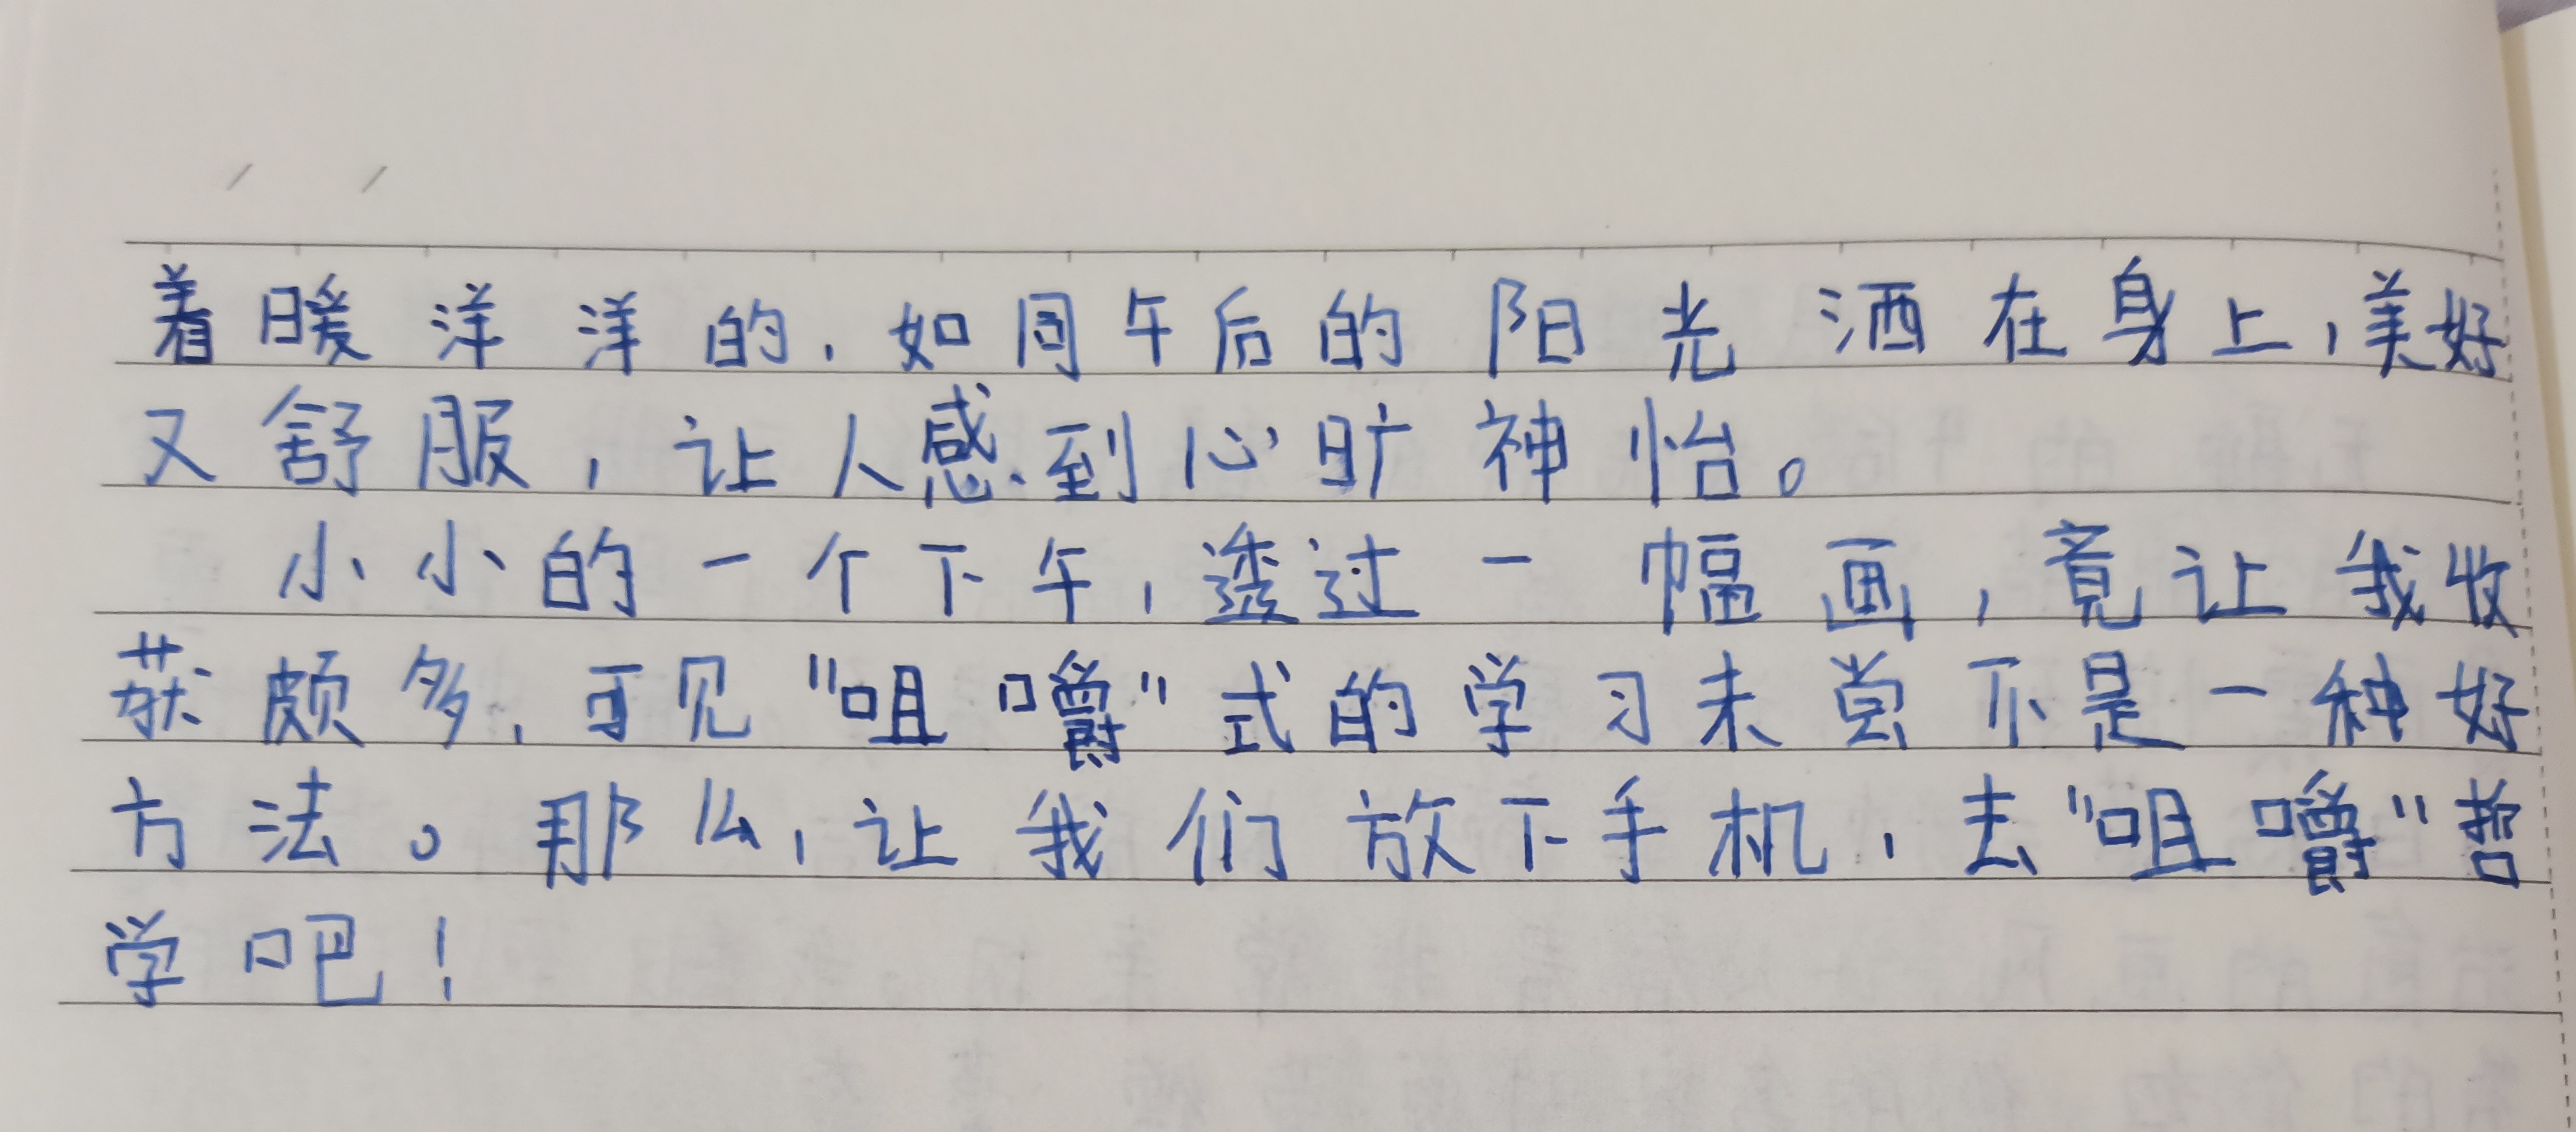 着暖洋洋的，如同午后的阳光洒在身上，美好
又舒服，让人感到心旷神怡。
小小的一个下午，透过一幅画，竟让我收
获颇多，可见“咀嚼”式的学习未尝不是一种好
方法。那么，让我们放下手机，去“咀嚼”哲
学吧！